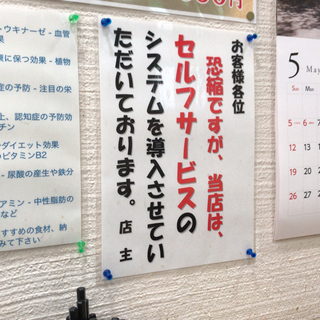 お客様各位
恐縮ですが、当店は、
セルフサービスの
システムを導入させてい
ただいております。
店主
ウキナーゼ - 血管
果
に保つ効果 - 植物
症の予防 - 注目の栄
上、認知症の予防効
チン
ダイエット効果
ビタミンB2
- 尿酸の産生や鉄分
アミン - 中性脂肪の
など
すすめの食材、納
み下さい
5 May
Sun Mon
5 6
12 13
19 20
26 27